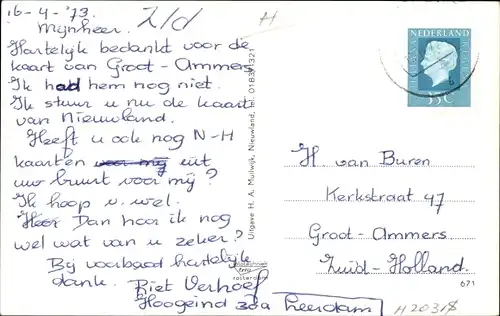 16-4-'73.
Z/d
H
Mynheer.
Hartelyk bedankt voor de
kaart van Groot-Ammers
Ik had hem nog niet.
Ik stuur u nu de kaart
van Nieuwland.
Heeft u ook nog N-H
kaarten voor my uit
uw buurt voor my?
Ik hoop u wel.
Hoor Dan hoor ik nog
wel wat van u zeker?
By voorbaad hartelyk
dank. Riet Verhoef
Hoogeind 30a Leerdam
Uitgave H. A. Muilwijk, Nieuwland, tel. 01835-1321
rotterdam
NEDERLAND
55c
H. van Buren
Kerkstraat 47
Groot-Ammers.
Zuid-Holland.
671
H20318